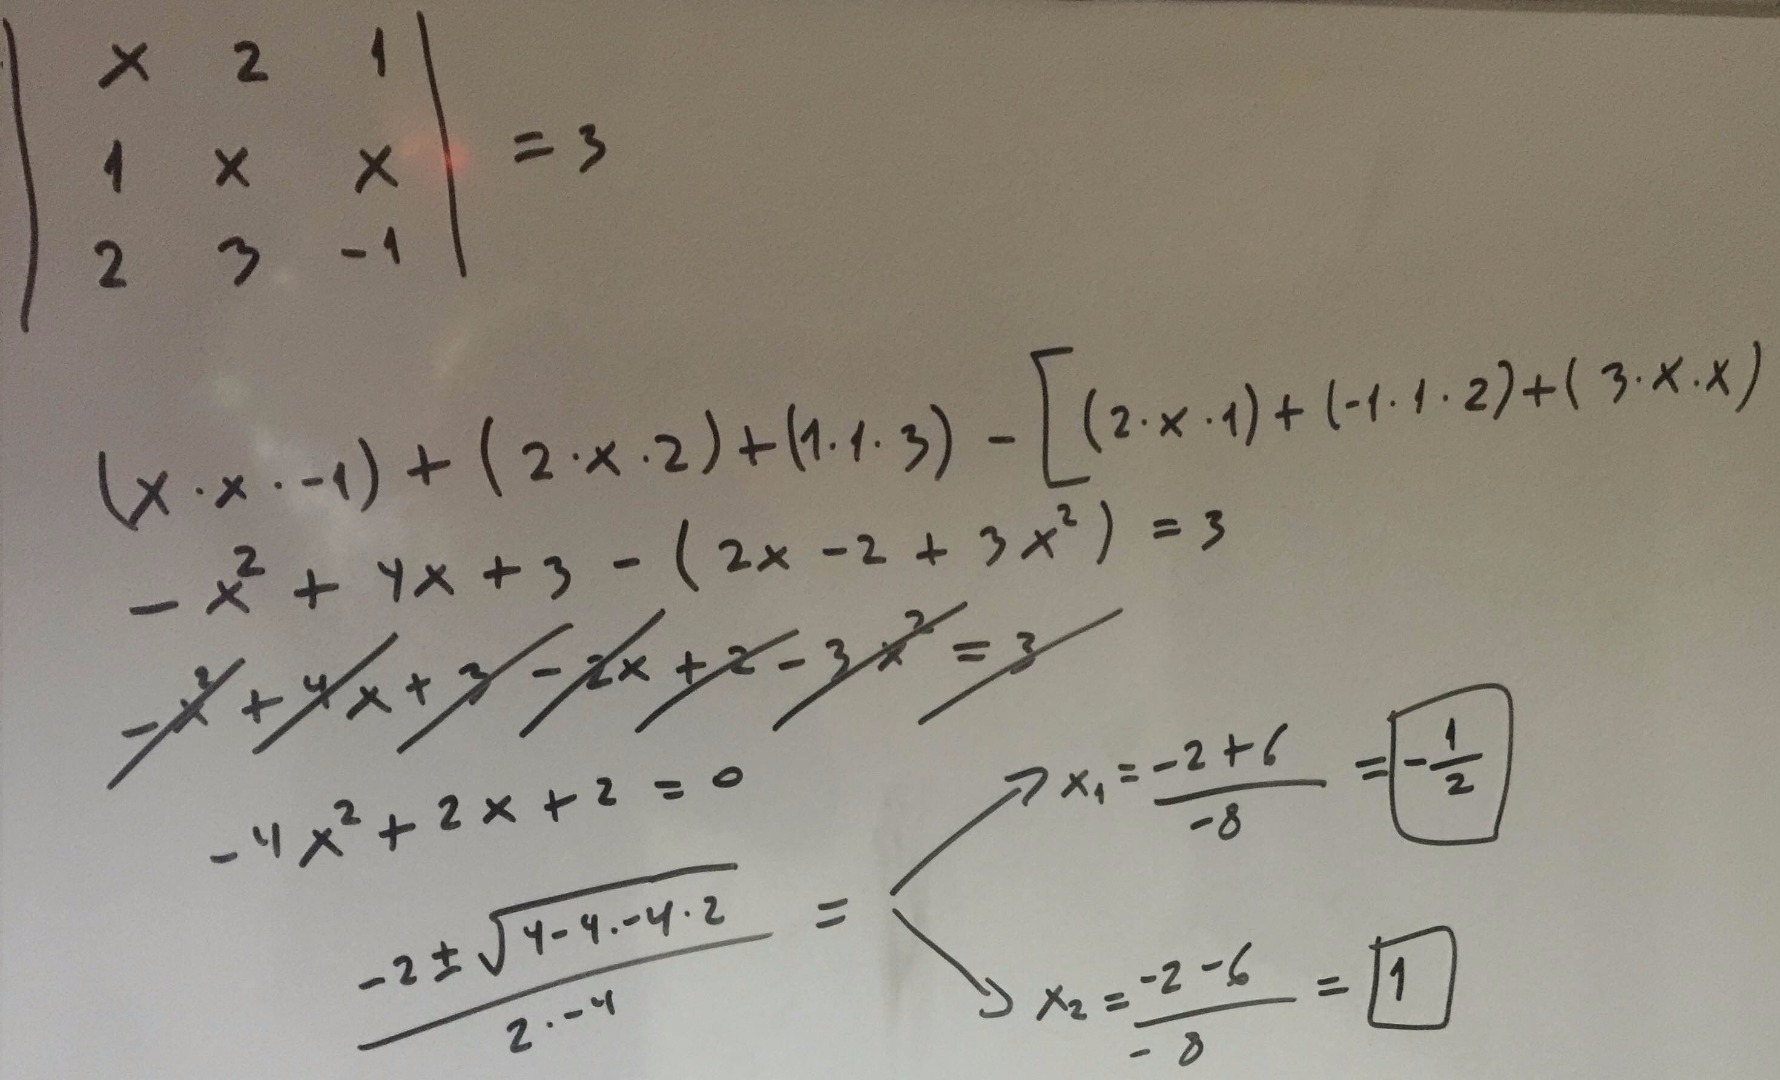 | x 2 1 |
| 1 x x | = 3
| 2 3 -1 |
(x·x·-1) + (2·x·2) + (1·1·3) - [(2·x·1) + (-1·1·2) + (3·x·x)
- x² + 4x + 3 - (2x - 2 + 3x²) = 3
- x² + 4x + 3 - 2x + 2 - 3x² = 3
- 4x² + 2x + 2 = 0
x₁ = (-2+6)/-8 = -1/2
(-2 ± √(4-4·-4·2))/(2·-4) =
x₂ = (-2-6)/-8 = 1